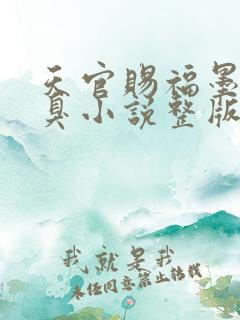 天官赐福墨
真小说整版
我就是我
未经同意禁止转载